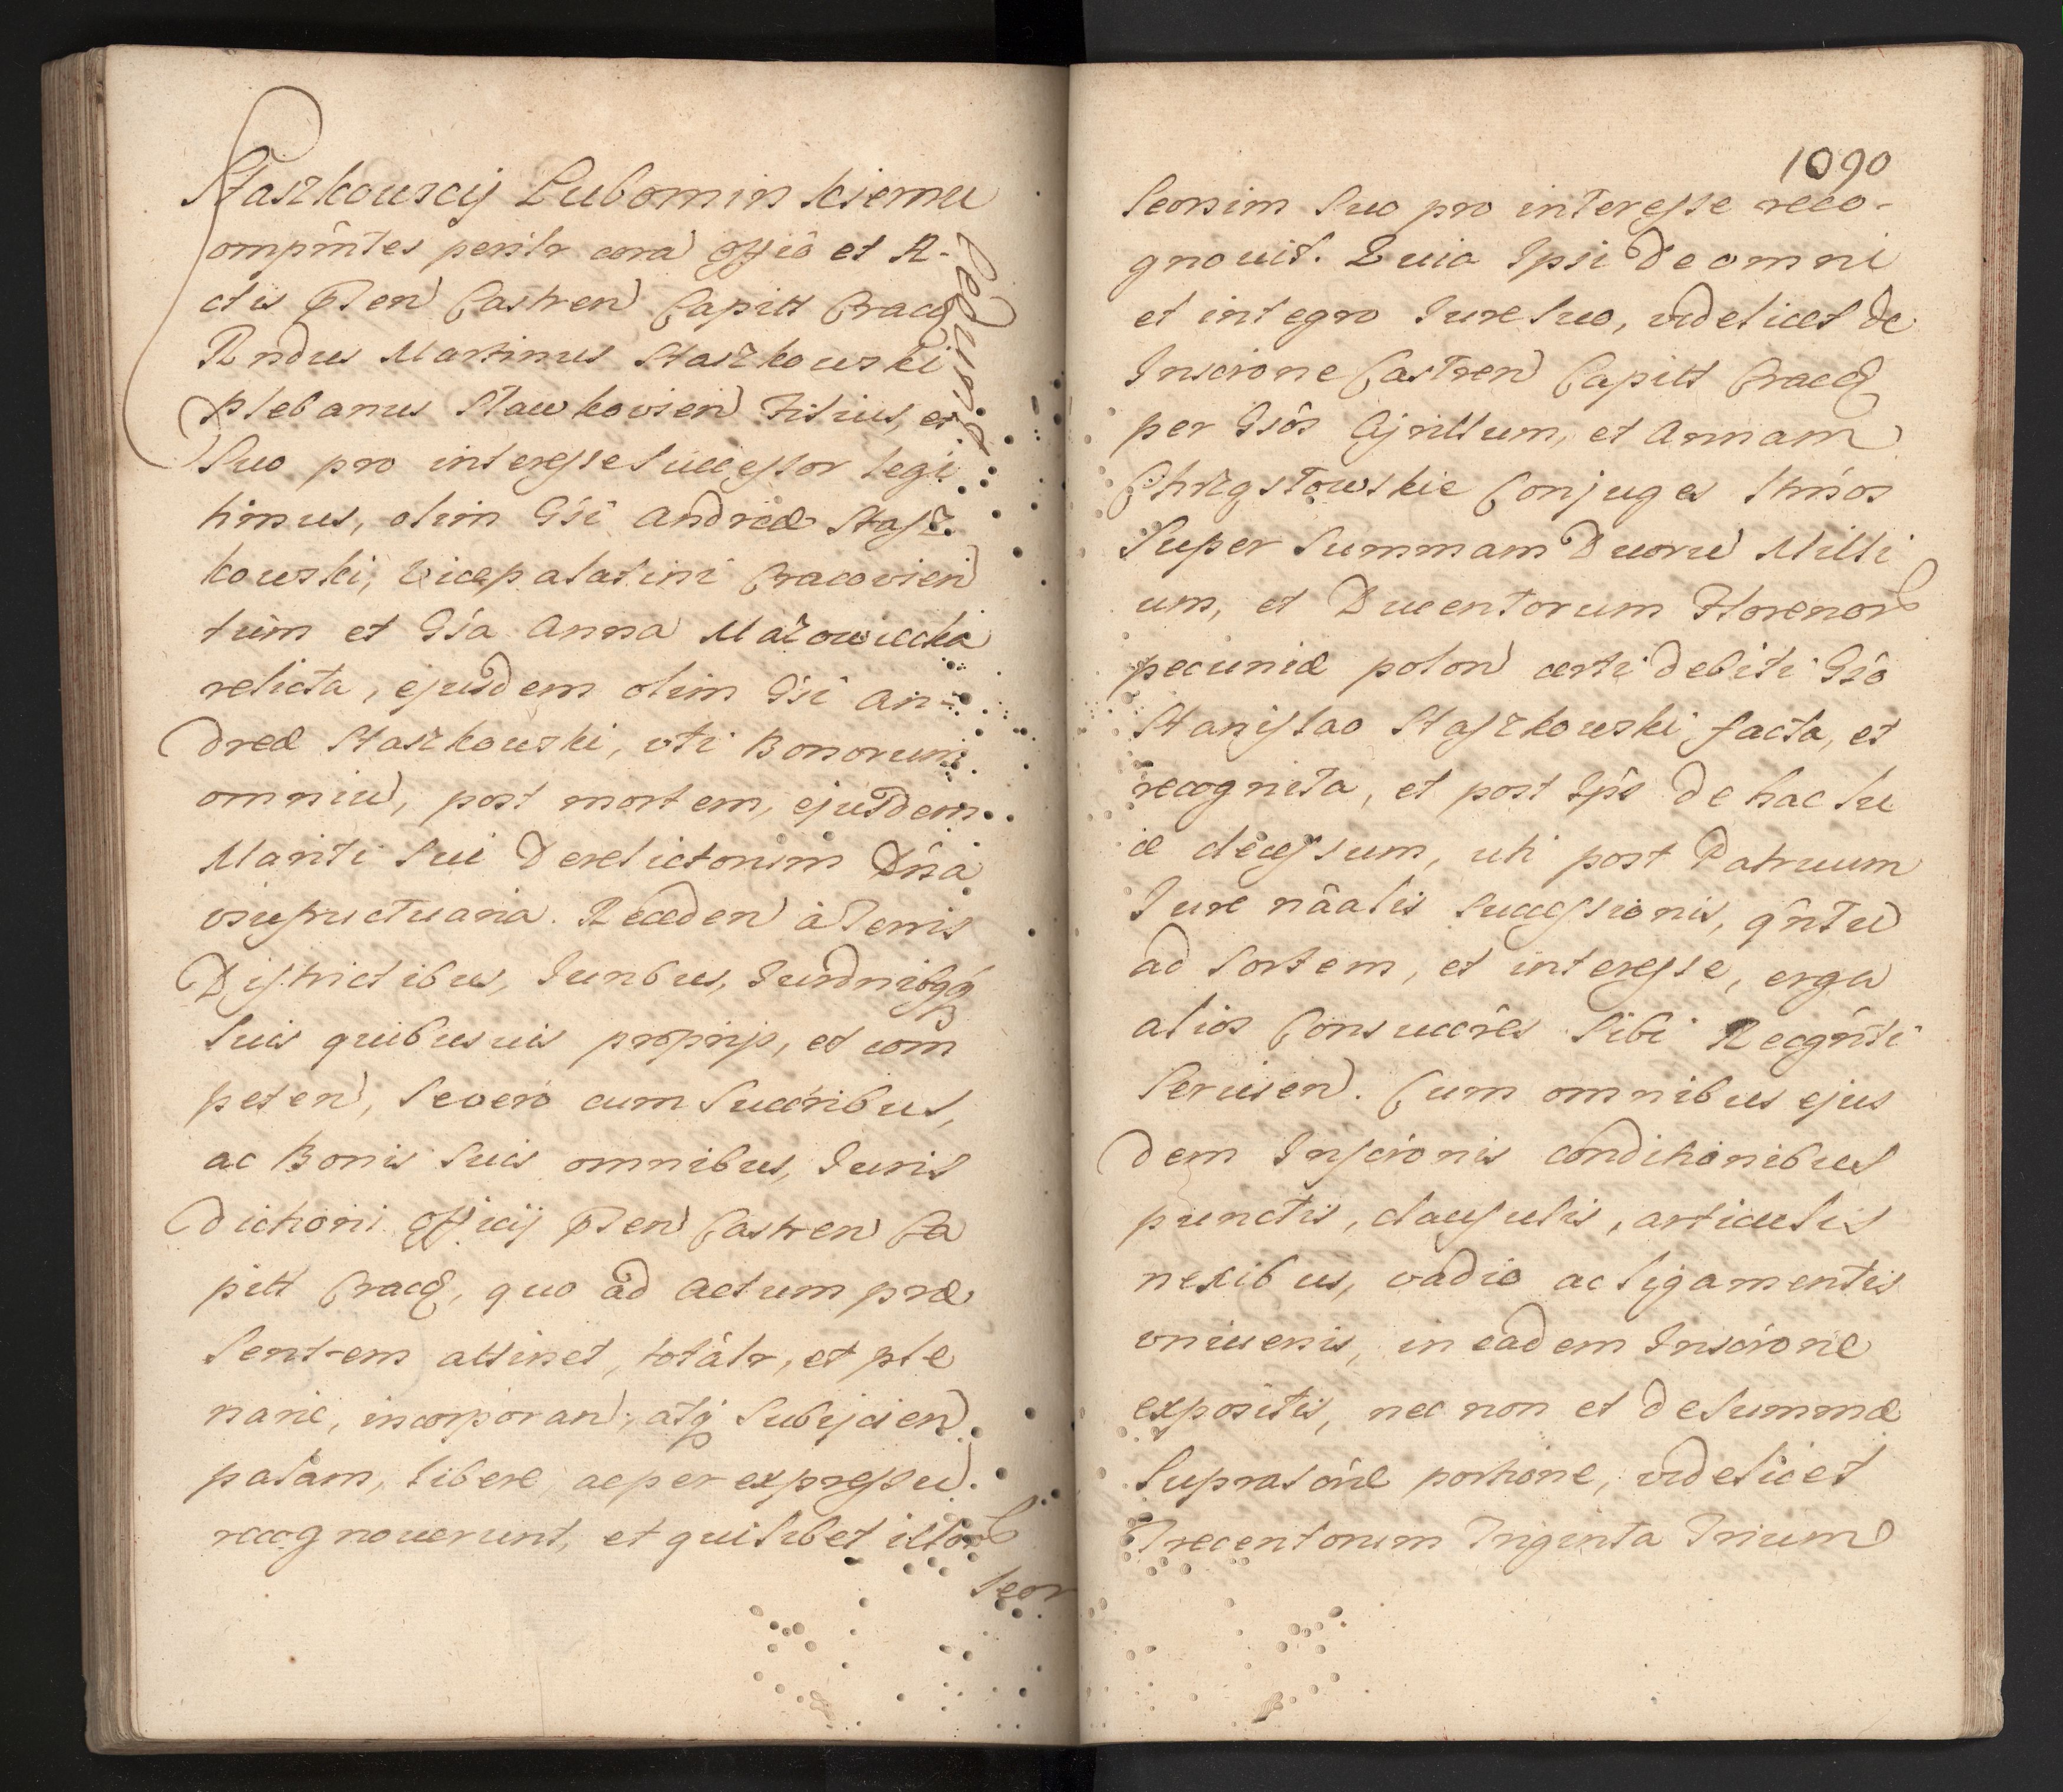 Staszkouscij Lubomin skiemu
omptntes persltr cora offio et A-
ctis pten Castren Capitt Cracq
Rndus Martinus Staszkowski
plebanus Stawkovien Filius, et
Suo pro interesse Successor legi
timus, olim Gsi Andreæ Stasz-
kowski, Vicepalatini Cracovien
tum et Gsa Anna Mazowiecka
relicta, ejusdem olim Gsi An-
dreæ Staszkowski, vti Bonorum
omniu, post mortem, ejusdem
Mariti Sui Derelictorum Dna
vsufructuaria. Receden à Terris
Districtibus, Juribus, Jurdnibqq
Suis quibusuis proprijs, et com
peten, Severo cum Succribus,
ac Bonis Suis omnibus, Juris
dictioni Officij pten Castren Ca
pitt Cracq, quo ad Actum præ
Sentem attinet, totaltr, et ple
narie, incorporan, atq Subijcien
palam, libere, ac per expressu
recognouerunt, et quilibet illor
Seor
Ledunt
1090
Seorsim Suo pro interesse reco-
gnouit. Quia Ipsi de omni
et integro Jure Suo, videlicet de
Inscrione Castren Capitt Cracq
per Gsos Cyrillum, et Annam
Chrzgstowskie Conjuges Ihmos
Super Summam Duoru Milli
um, et Ducentorum Florenor
pecuniæ polon certi debiti Gso
Stanislao Staszkowski facta, et
recognita, et post Ips de hac lu
ce decessum, uti post Patruum
Jure nâalis Successionis, qntu
ad Sortem, et interesse, erga
alios Consuccres Sibi Recgnti
Seruien. Cum omnibus ejus
dem Inscrionis conditionibus
punctis, clausulis, articulis
nexibus, vadio ac ligamentis
vniuersis, in eadem Inscrione
expositis, nec non et de Summæ
Suprascrie portione, videlicet
Trecentorum Triginta Trium